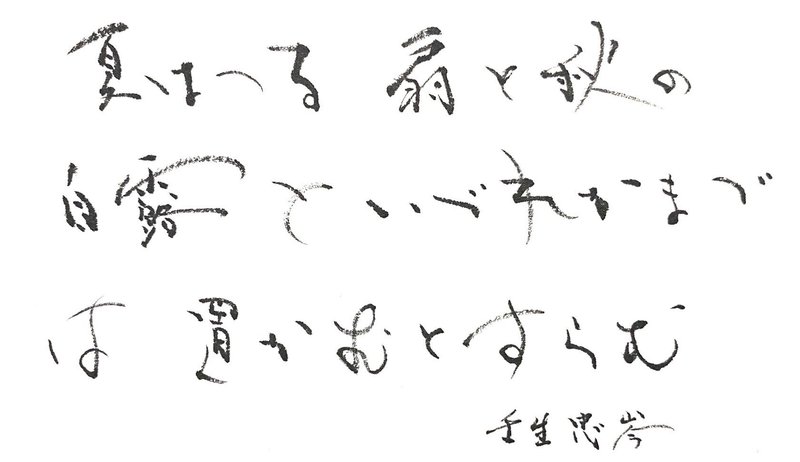 夏はつる 扇と秋の
白露といづれかまづ
は 置かむとすらむ
壬生忠岑